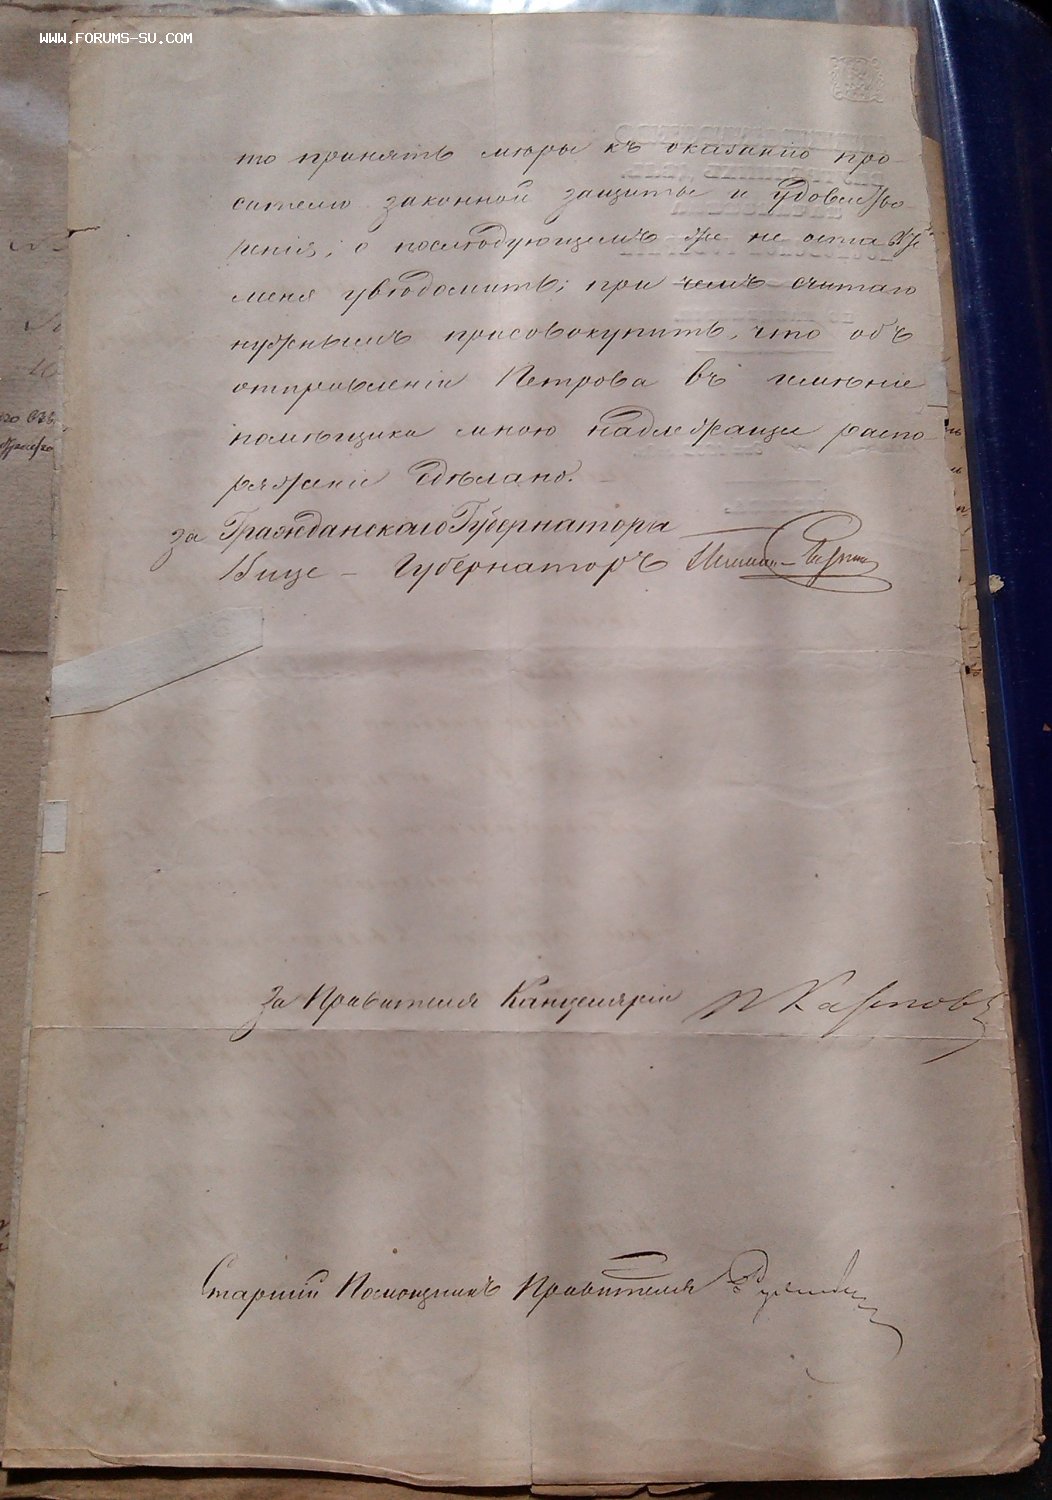 WWW.FORUMS-SU.COM
то принять мѣры къ оказанію про-
сителю законной защиты и удовлетво-
ренія; о послѣдующемъ же не оставьте
меня увѣдомить; при чемъ считаю
нужнымъ присовокупить, что объ
отправленіи Петрова въ имѣніе
помѣщика мною надлежащее распо-
ряженіе сдѣлано.
за Гражданскаго Губернатора
Вице-Губернаторъ
За Правителя Канцеляріи П Карповъ
Старшій Помощникъ Правителя